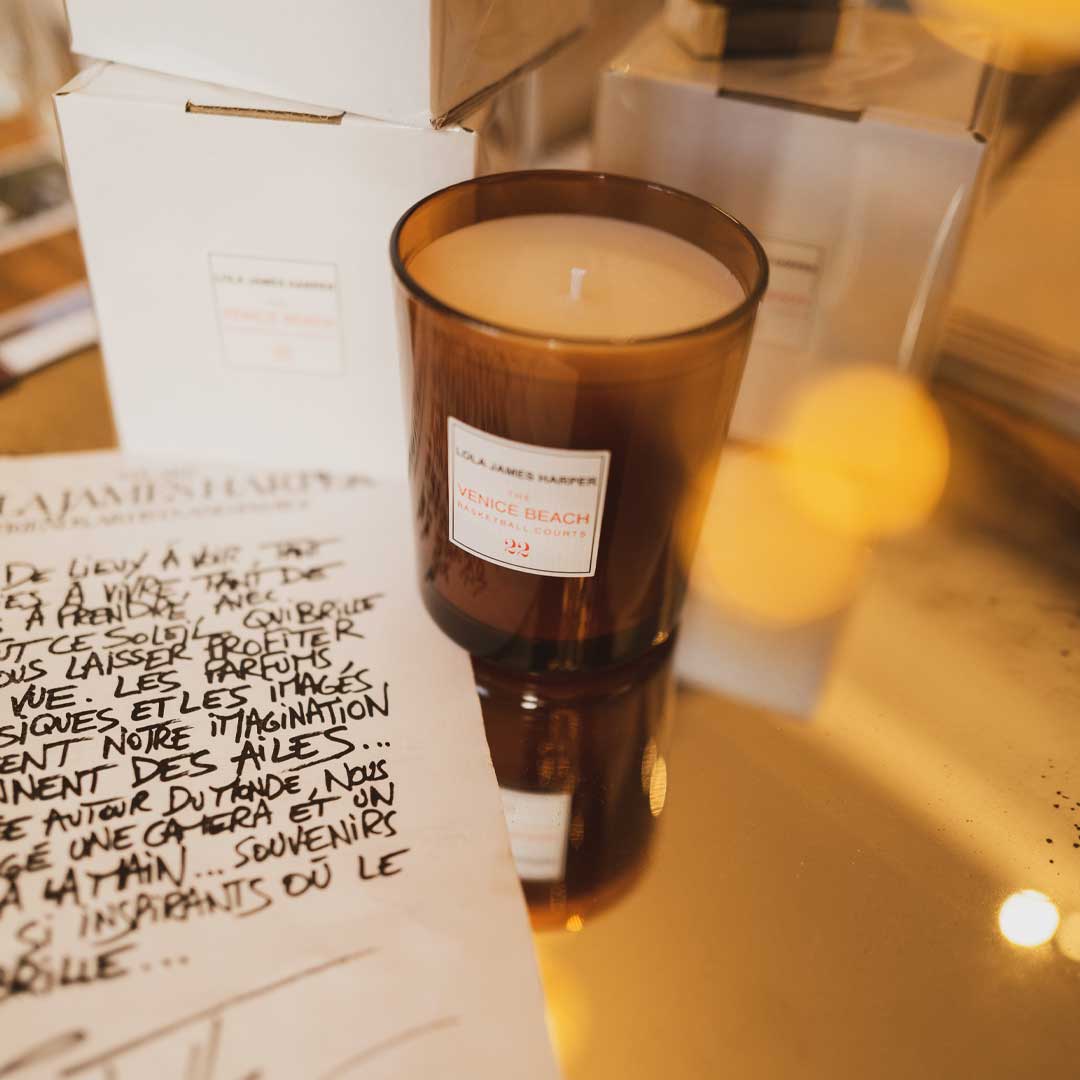 LOLA JAMES HARPER
VENICE BEACH
22
LOLA JAMES HARPER
THE
VENICE BEACH
BASKETBALL COURTS
22
LA JAMES HARPER
DE LIEUX À VOIR, TANT
ES À VIVRE, TANT DE
S À PRENDRE, AVEC
UT CE SOLEIL QUI BRILLE
OUS LAISSER PROFITER
VUE. LES PARFUMS
SIQUES ET LES IMAGES
ENT NOTRE IMAGINATION
NNENT DES AILES...
ÉE AUTOUR DU MONDE, NOUS
GÉ UNE CAMERA ET UN
À LA MAIN... SOUVENIRS
SI INSPIRANTS OÙ LE
BRILLE...